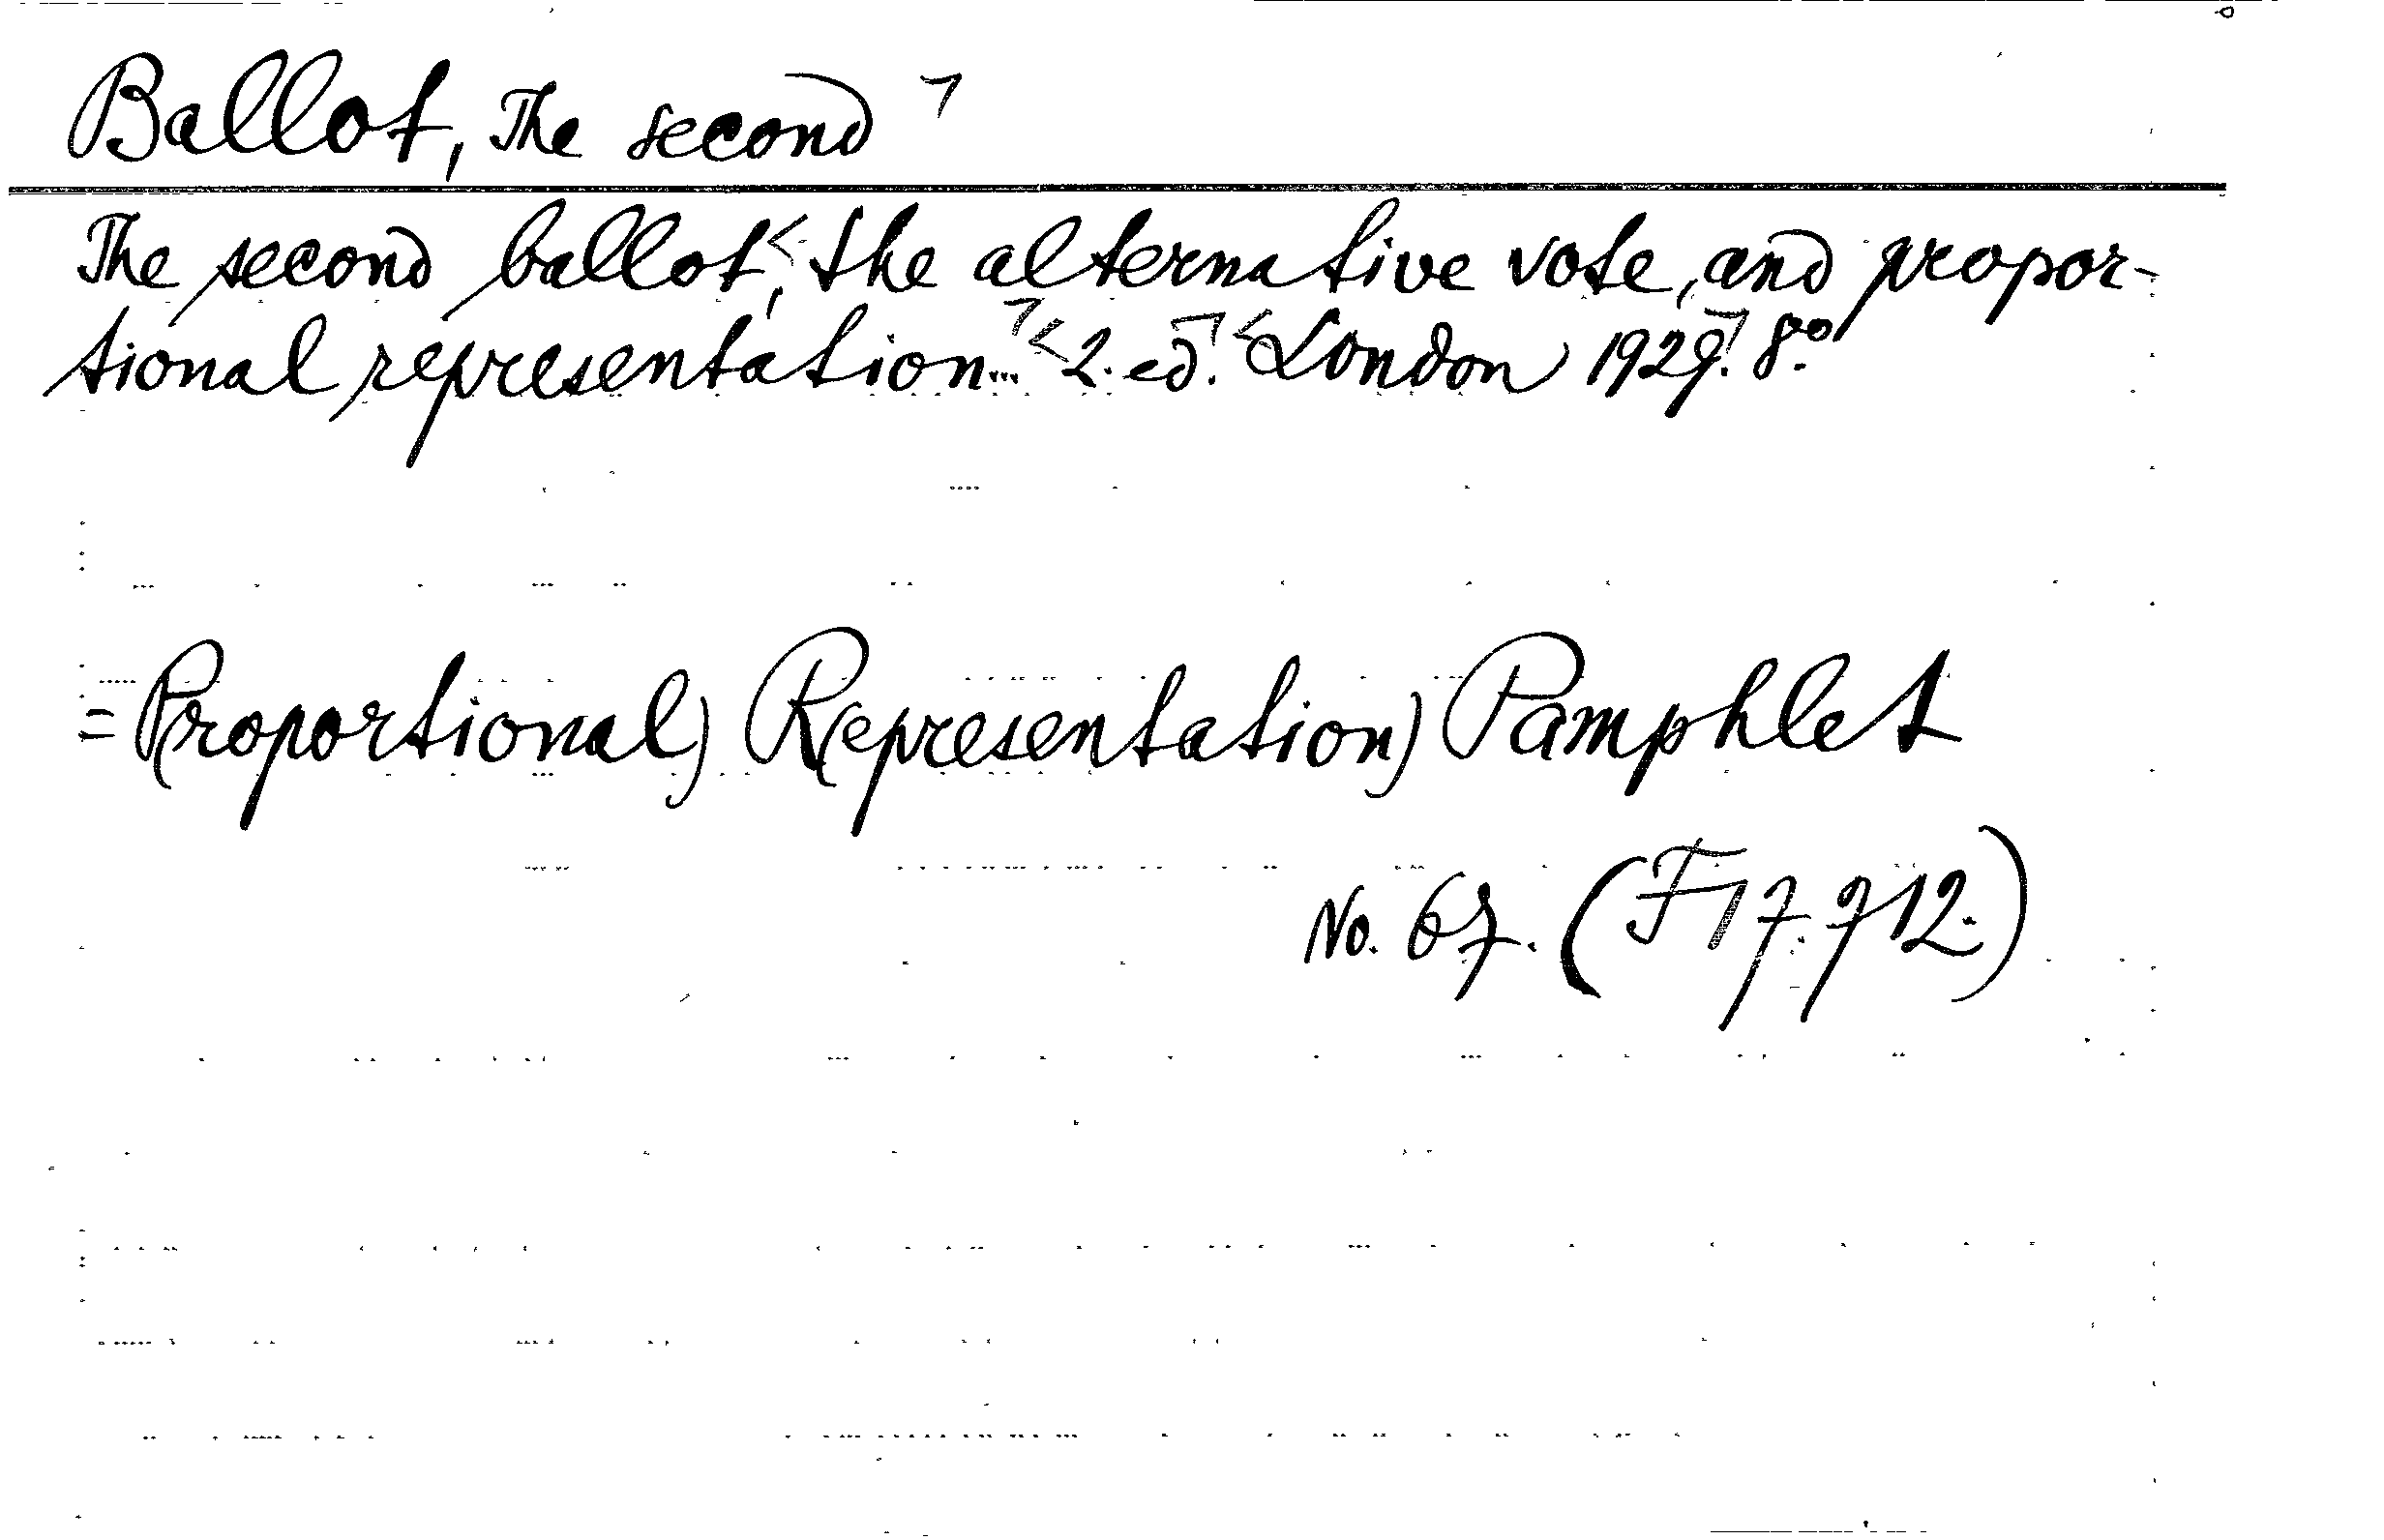 Ballot, The second
The second ballot, the alternative vote, and propor-
tional representation... 2. ed. London 1929. 8:o
= P(roportional) R(epresentation) Pamphlet
No. 67. (F17.712.)